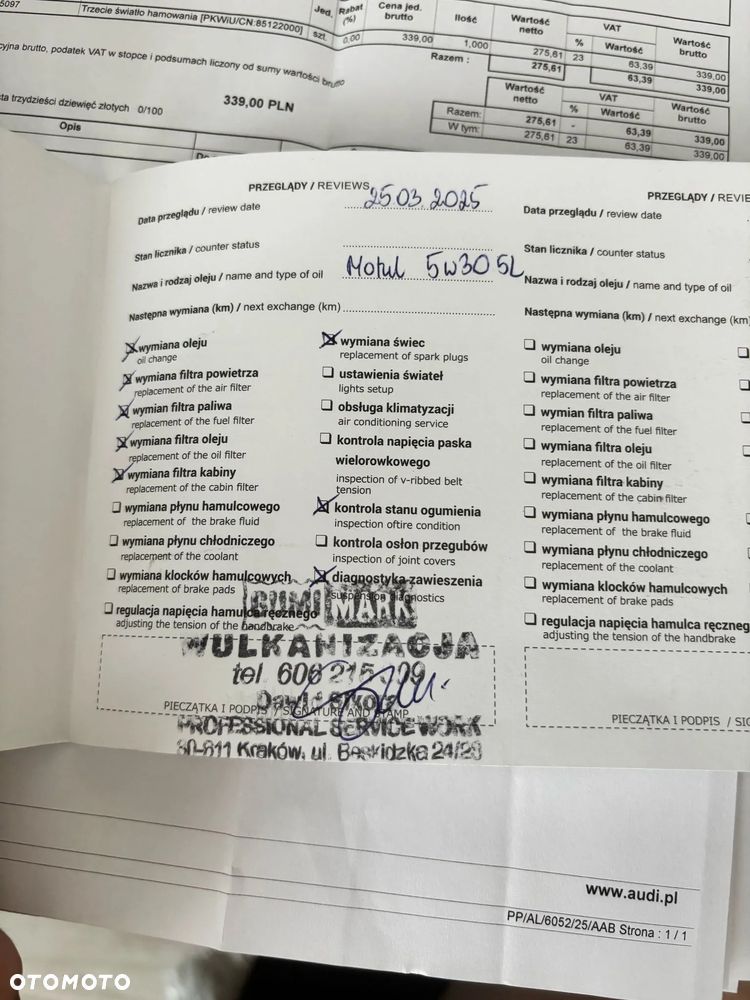 5097
Trzecie światło hamowania [PKWiU/CN:85122000]
Jed.
szt.
Rabat (%)
0,00
Cena jed. brutto
339,00
Ilość
1,000
Razem :
Wartość netto
275,61
275,61
VAT
%
Wartość
23
63,39
63,39
Wartość brutto
339,00
339,00
brutto, podatek VAT w stopce i podsumach liczony od sumy wartości brutto
Wartość netto
VAT
%
Wartość
Wartość brutto
trzydzieści dziewięć złotych 0/100
339,00 PLN
Razem:
275,61
-
63,39
339,00
W tym:
275,61
23
63,39
339,00
Opis
PRZEGLĄDY / REVIEWS
25.03.2025
Data przeglądu / review date
Stan licznika / counter status
Nazwa i rodzaj oleju / name and type of oil
Motul 5w30 5L
Następna wymiana (km) / next exchange (km)
wymiana oleju
oil change
wymiana filtra powietrza
replacement of the air filter
wymian filtra paliwa
replacement of the fuel filter
wymiana filtra oleju
replacement of the oil filter
wymiana filtra kabiny
replacement of the cabin filter
wymiana płynu hamulcowego
replacement of the brake fluid
wymiana płynu chłodniczego
replacement of the coolant
wymiana klocków hamulcowych
replacement of brake pads
regulacja napięcia hamulca ręcznego
adjusting the tension of the handbrake
wymiana świec
replacement of spark plugs
ustawienia świateł
lights setup
obsługa klimatyzacji
air conditioning service
kontrola napięcia paska
wielorowkowego
inspection of v-ribbed belt
tension
kontrola stanu ogumienia
inspection oftire condition
kontrola osłon przegubów
inspection of joint covers
diagnostyka zawieszenia
suspension diagnostics
GUMI MARK
WULKANIZACJA
tel. 606 215
PIECZĄTKA I PODPIS / SIGNATURE AND STAMP
PROFESSIONAL SERVICE WORK
Kraków, ul. Beskidzka
PRZEGLĄDY / REVIE
Data przeglądu / review date
Stan licznika / counter status
Nazwa i rodzaj oleju / name and type of oil
Następna wymiana (km) / next exchange (km)
wymiana oleju
oil change
wymiana filtra powietrza
replacement of the air filter
wymian filtra paliwa
replacement of the fuel filter
wymiana filtra oleju
replacement of the oil filter
wymiana filtra kabiny
replacement of the cabin filter
wymiana płynu hamulcowego
replacement of the brake fluid
wymiana płynu chłodniczego
replacement of the coolant
wymiana klocków hamulcowych
replacement of brake pads
regulacja napięcia hamulca ręczneg
adjusting the tension of the handbrake
PIECZĄTKA I PODPIS / SIG
www.audi.pl
PP/AL/6052/25/AAB Strona : 1 / 1
OTOMOTO